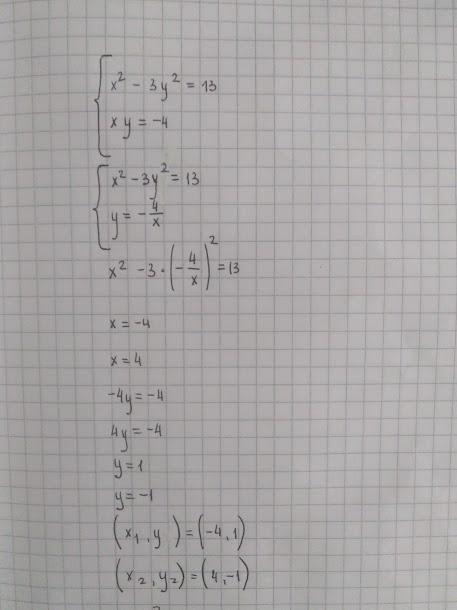 x² - 3y² = 13
xy = -4
x² - 3y² = 13
y = - 4/x
x² - 3 · (- 4/x)² = 13
x = -4
x = 4
-4y = -4
4y = -4
y = 1
y = -1
(x₁, y ) = (-4, 1)
(x₂, y₂) = (4, -1)